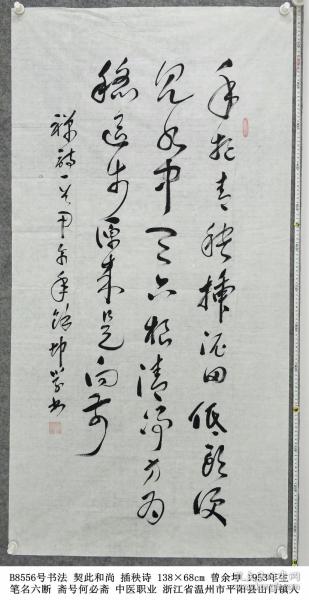 手把青秧插滿田低頭便
見水中天六根清淨方為
穩退步原來是向前
禪詩一首甲午年餘坤學書
B8556号书法 契此和尚 插秧诗 138×68cm 曾余坤 1953年生
笔名六断 斋号何必斋 中医职业 浙江省温州市平阳县山门镇人